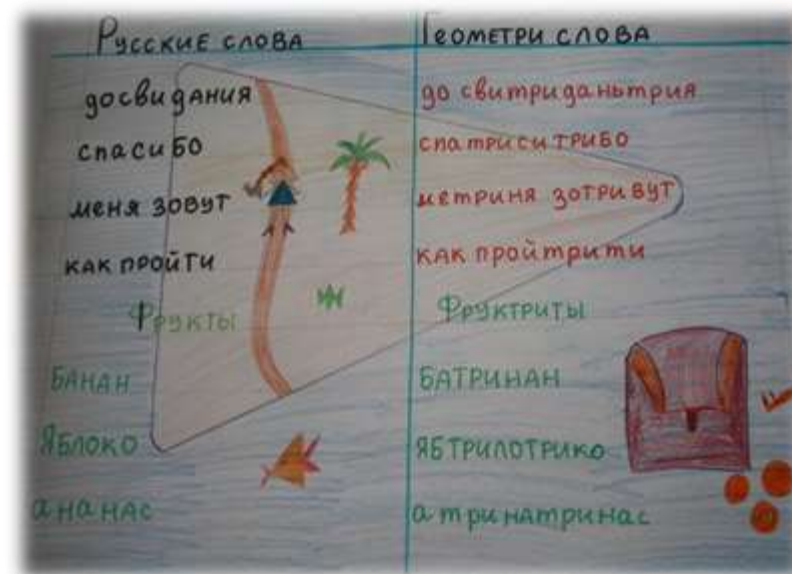 Русские слова
Геометри слова
досвидания
до свитриданьтрия
спасибо
спатриситрибо
меня зовут
метриня зотривут
как пройти
как пройтрити
Фрукты
Фруктриты
Банан
Батринан
Яблоко
Ябтрилотрико
ананас
атринатринас